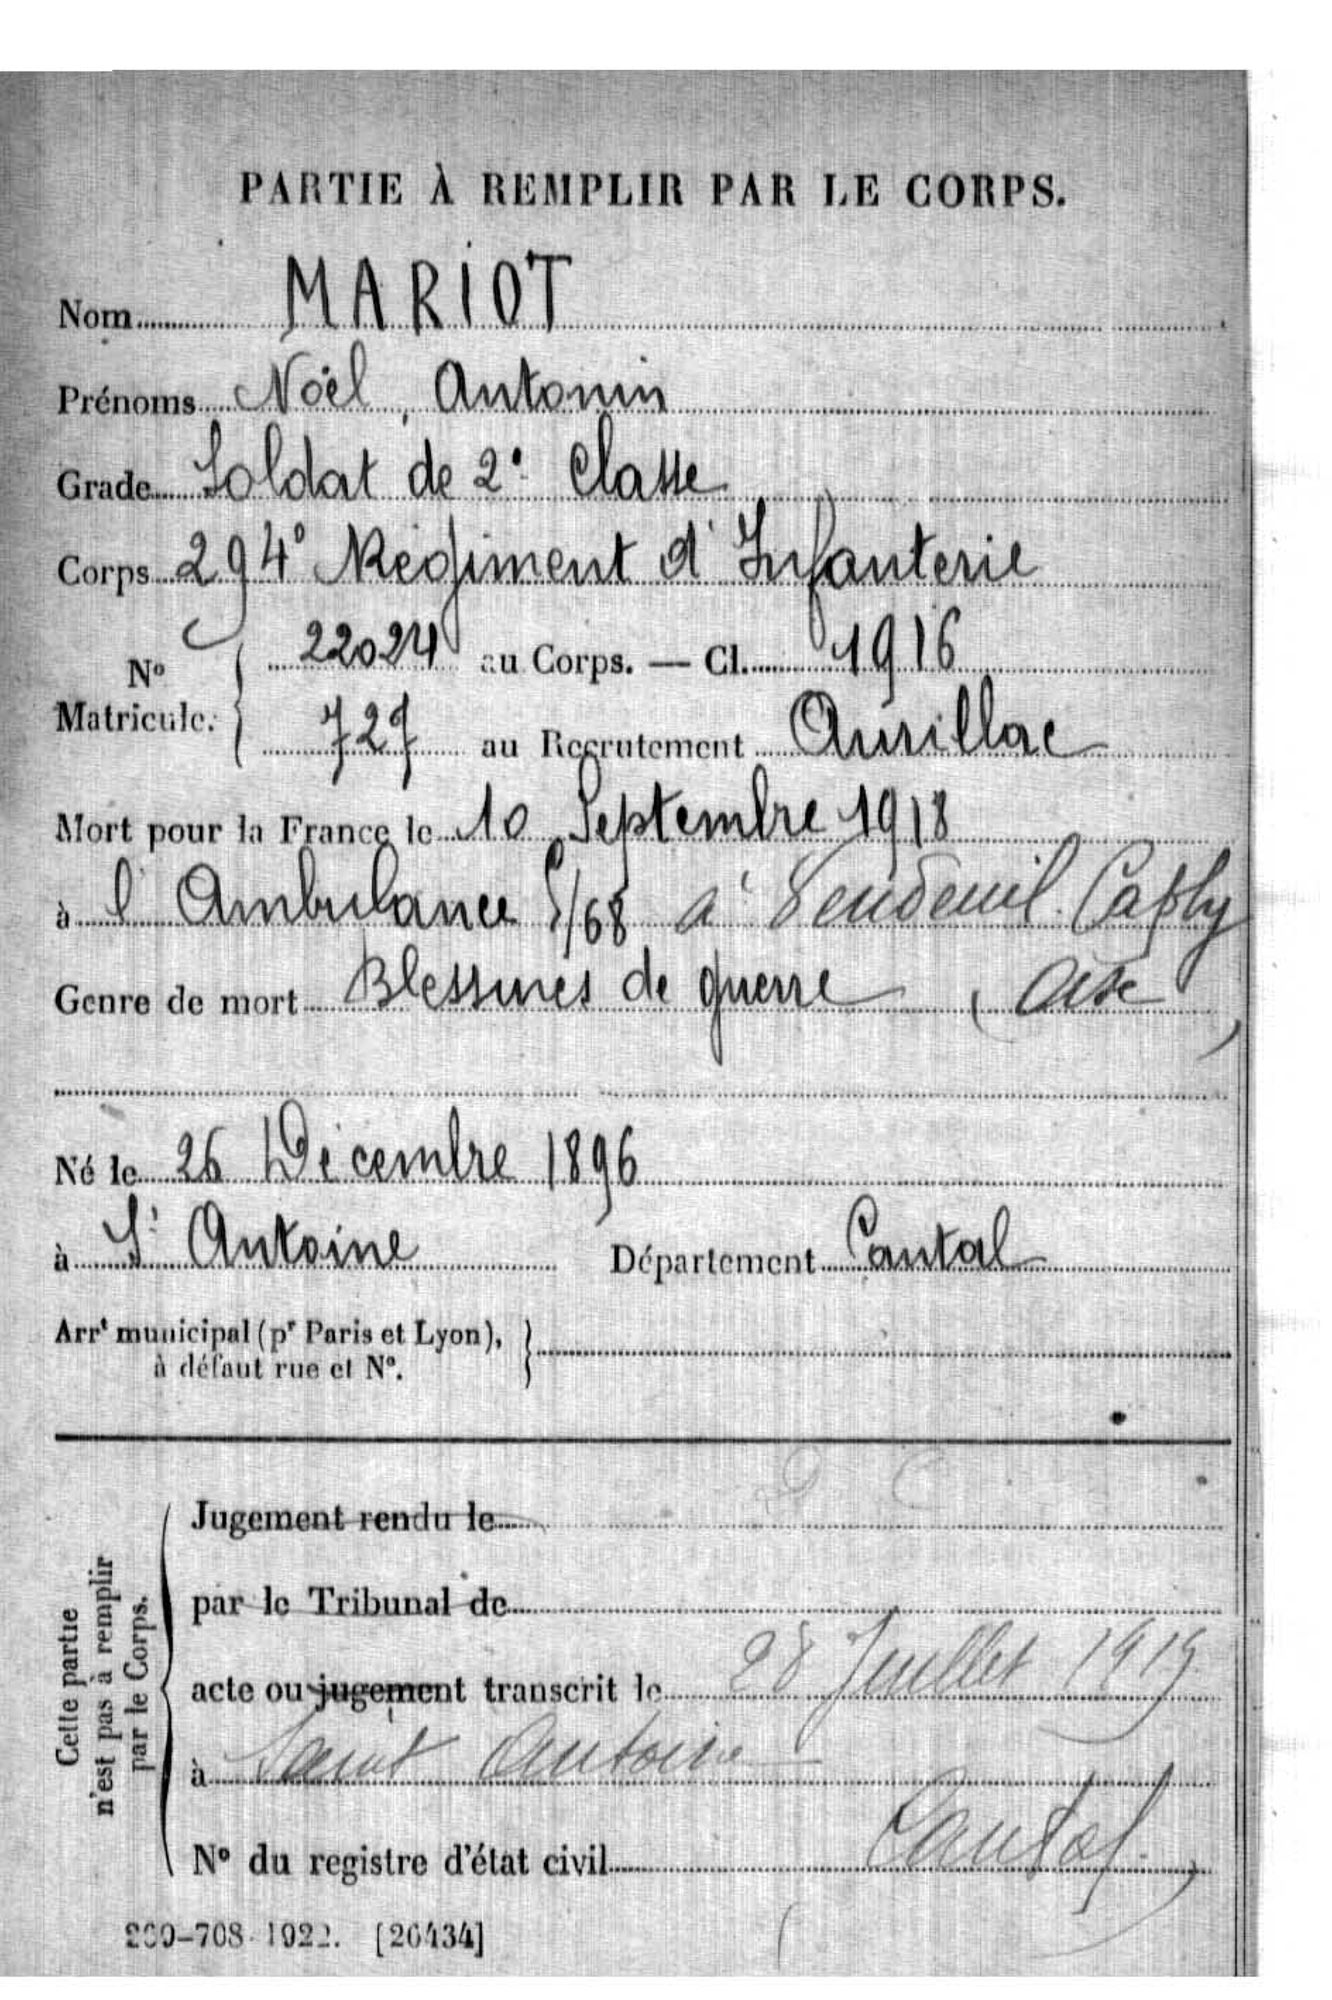 PARTIE À REMPLIR PAR LE CORPS.
Nom MARIOT
Prénoms Noël, Antonin
Grade Soldat de 2e Classe
Corps 294e Régiment d'Infanterie
No Matricule. 22024 au Corps. — Cl. 1916
727 au Recrutement Aurillac
Mort pour la France le 10 Septembre 1918
à l'Ambulance 5/68 à Vendeuil Caply
Genre de mort Blessures de guerre (Oise)
Né le 26 Décembre 1896
à St Antoine Département Cantal
Arrt municipal (pr Paris et Lyon),
à défaut rue et No.
Cette partie
n'est pas à remplir
par le Corps.
Jugement rendu le
par le Tribunal de
acte ou jugement transcrit le 28 Juillet 1919
à Saint Antoine
No du registre d'état civil Cantal
1922. [26434]